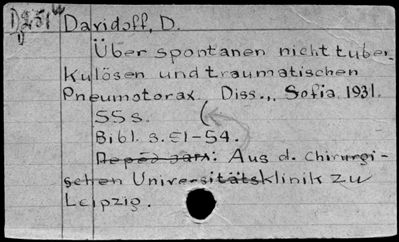 D251 Davidoff, D.
D
Über spontanen nicht tuber-
kulösen und traumatischen
Pneumotorax. Diss., Sofia 1931.
55 s.
Bibl. s. 51-54.
Aus d. Chirurgi-
schen Universitätsklinik zu
Leipzig.